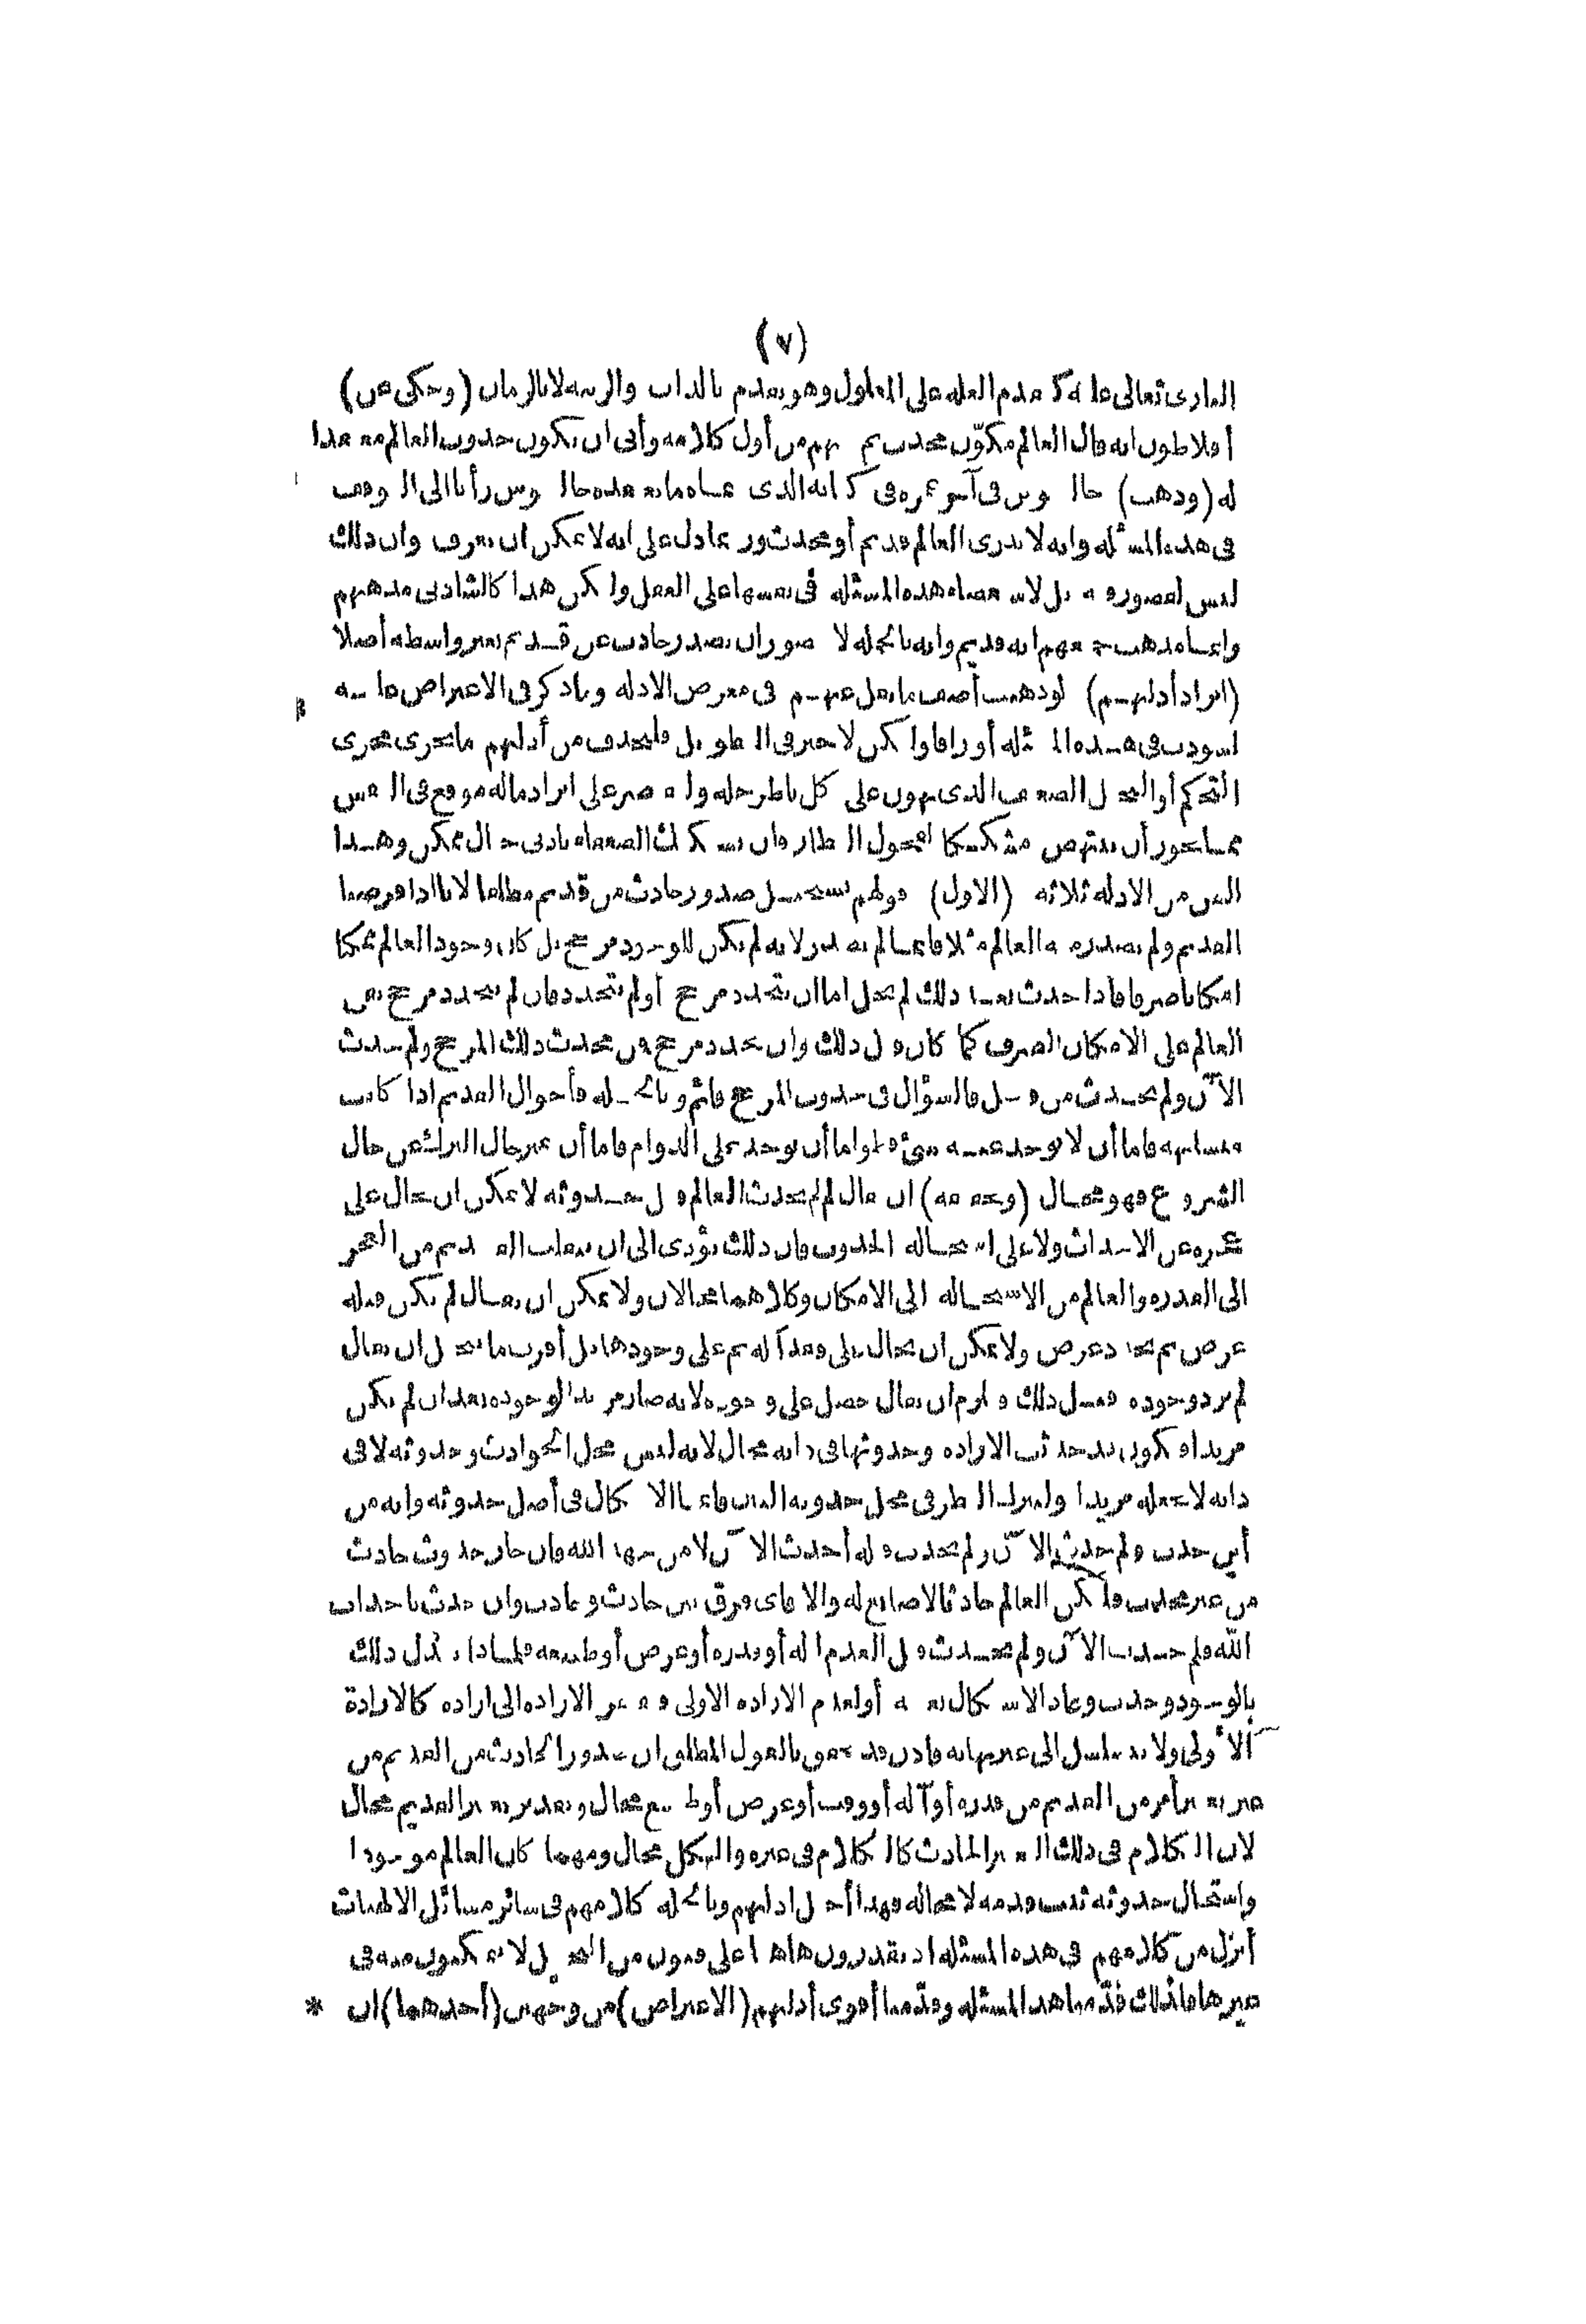 (٧)
البارى تعالى عليه كتقدم العلة على المعلول وهو تقدم بالذات والرتبة لا بالزمان (وحكى عن)
أفلاطون انه قال العالم مكوّن محدث ثم منهم من أول كلامه وأبى ان يكون حدوث العالم معتقدا
له (وذهب) جالينوس فى آخر عمره فى كتابه الذى سماه ما يعتقده جالينوس رأيا الى التوقف
فى هذه المسئلة وانه لا يدرى العالم قديم أو محدث وربما دل على انه لا يمكن ان يعرف وان ذلك
ليس لقصور فيه بل لاستعصاء هذه المسئلة فى نفسها على العقول ولكن هذا كالشاذ فى مذهبهم
وانما مذهب جميعهم انه قديم وانه بالجملة لا يتصور ان يصدر حادث عن قديم بغير واسطة أصلا
(ايراد أدلتهم) لو ذهبت أصف ما نقل عنهم فى معرض الادلة وما ذكر فى الاعتراض عليه
لسودت فى هذه المسئلة أوراقا ولكن لا خير فى التطويل فلنحذف من أدلتهم ما يجرى مجرى
التحكم أو التخيل الضعيف الذى يهون على كل ناظر حله ولنقتصر على ايراد ماله موقع فى النفس
مما يجوز أن ينتهض مشككا لفحول النظار فان تشكيك الضعفاء بادنى خيال ممكن وهذا
الفن من الادلة ثلاثة (الاول) قولهم يستحيل صدور حادث من قديم مطلقا لانا اذا فرضنا
القديم ولم يصدر منه العالم مثلا فانما لم يصدر لانه لم يكن للوجود مرجح بل كان وجود العالم ممكنا
امكانا صرفا فاذا حدث بعد ذلك لم يخل اما ان يتجدد مرجح أو لم يتجدد فان لم يتجدد مرجح بقى
العالم على الامكان الصرف كما كان قبل ذلك وان تجدد مرجح فمن محدث ذلك المرجح ولم حدث
الآن ولم يحدث من قبل فالسؤال فى حدوث المرجح قائم وبالجملة فأحوال القديم اذا كانت
متشابهة فاما أن لا يوجد عنه شئ قط واما أن يوجد على الدوام فاما أن يتميز حال الترك عن حال
الشروع فهو محال (وتحقيقه) ان يقال لم لم يحدث العالم قبل حدوثه لا يمكن ان يحال على
عجزه عن الاحداث ولا على استحالة الحدوث فان ذلك يؤدى الى ان ينقلب القديم من العجز
الى القدرة والعالم من الاستحالة الى الامكان وكلاهما محالان ولا يمكن ان يقال لم يكن قبله
غرض ثم تجدد غرض ولا يمكن ان يحال على فقد آلة ثم على وجودها بل أقرب ما يتخيل ان يقال
لم يرد وجوده قبل ذلك فيلزم ان يقال حصل على وجوده لانه صار مريدا لوجوده بعد ان لم يكن
مريدا فيكون قد حدثت الارادة وحدوثها فى ذاته محال لانه ليس محل الحوادث وحدوثه لا فى
ذاته لا يجعله مريدا ولنترك النظر فى محل حدوثه أليس فانما الاشكال فى أصل حدوثه وانه من
أين حدث ولم حدث الآن ولم يحدث قبله أحدث الآن لا من جهة الله فان جاز حدوث حادث
من غير محدث فليكن العالم حادثا لا صانع له والا فاى فرق بين حادث وحادث وان حدث باحداث
الله فلم حدث الآن ولم يحدث قبل العدم آلة أو قدرة أو غرض أو طبيعة فلما ذا تبدل ذلك
بالوجود وحدث وعاد الاشكال بعينه أو لعدم الارادة الاولى فتفتقر الارادة الى ارادة كالارادة
الأولى ولا يتسلسل الى غير نهاية فاذن قد تحقق بالقول المطلق ان صدور الحادث من القديم من
غير تغير أمر من القديم من قدرة أو آلة أو وقت أو غرض أو طبع محال وتقدير تغير القديم محال
لان الكلام فى ذلك التغير الحادث كالكلام فى غيره والكل محال ومهما كان العالم موجودا
واستحال حدوثه ثبت قدمه لا محالة فهذا أخيل ادلتهم وبالجملة كلامهم فى سائر مسائل الالهيات
أنزل من كلامهم فى هذه المسئلة اذ يقدرون هاهنا على فنون من التخيل لا يتمكنون منه فى
غيرها فلذلك قدّمنا هذه المسئلة وقدّمنا أقوى أدلتهم (الاعتراض) من وجهين (أحدهما) ان *